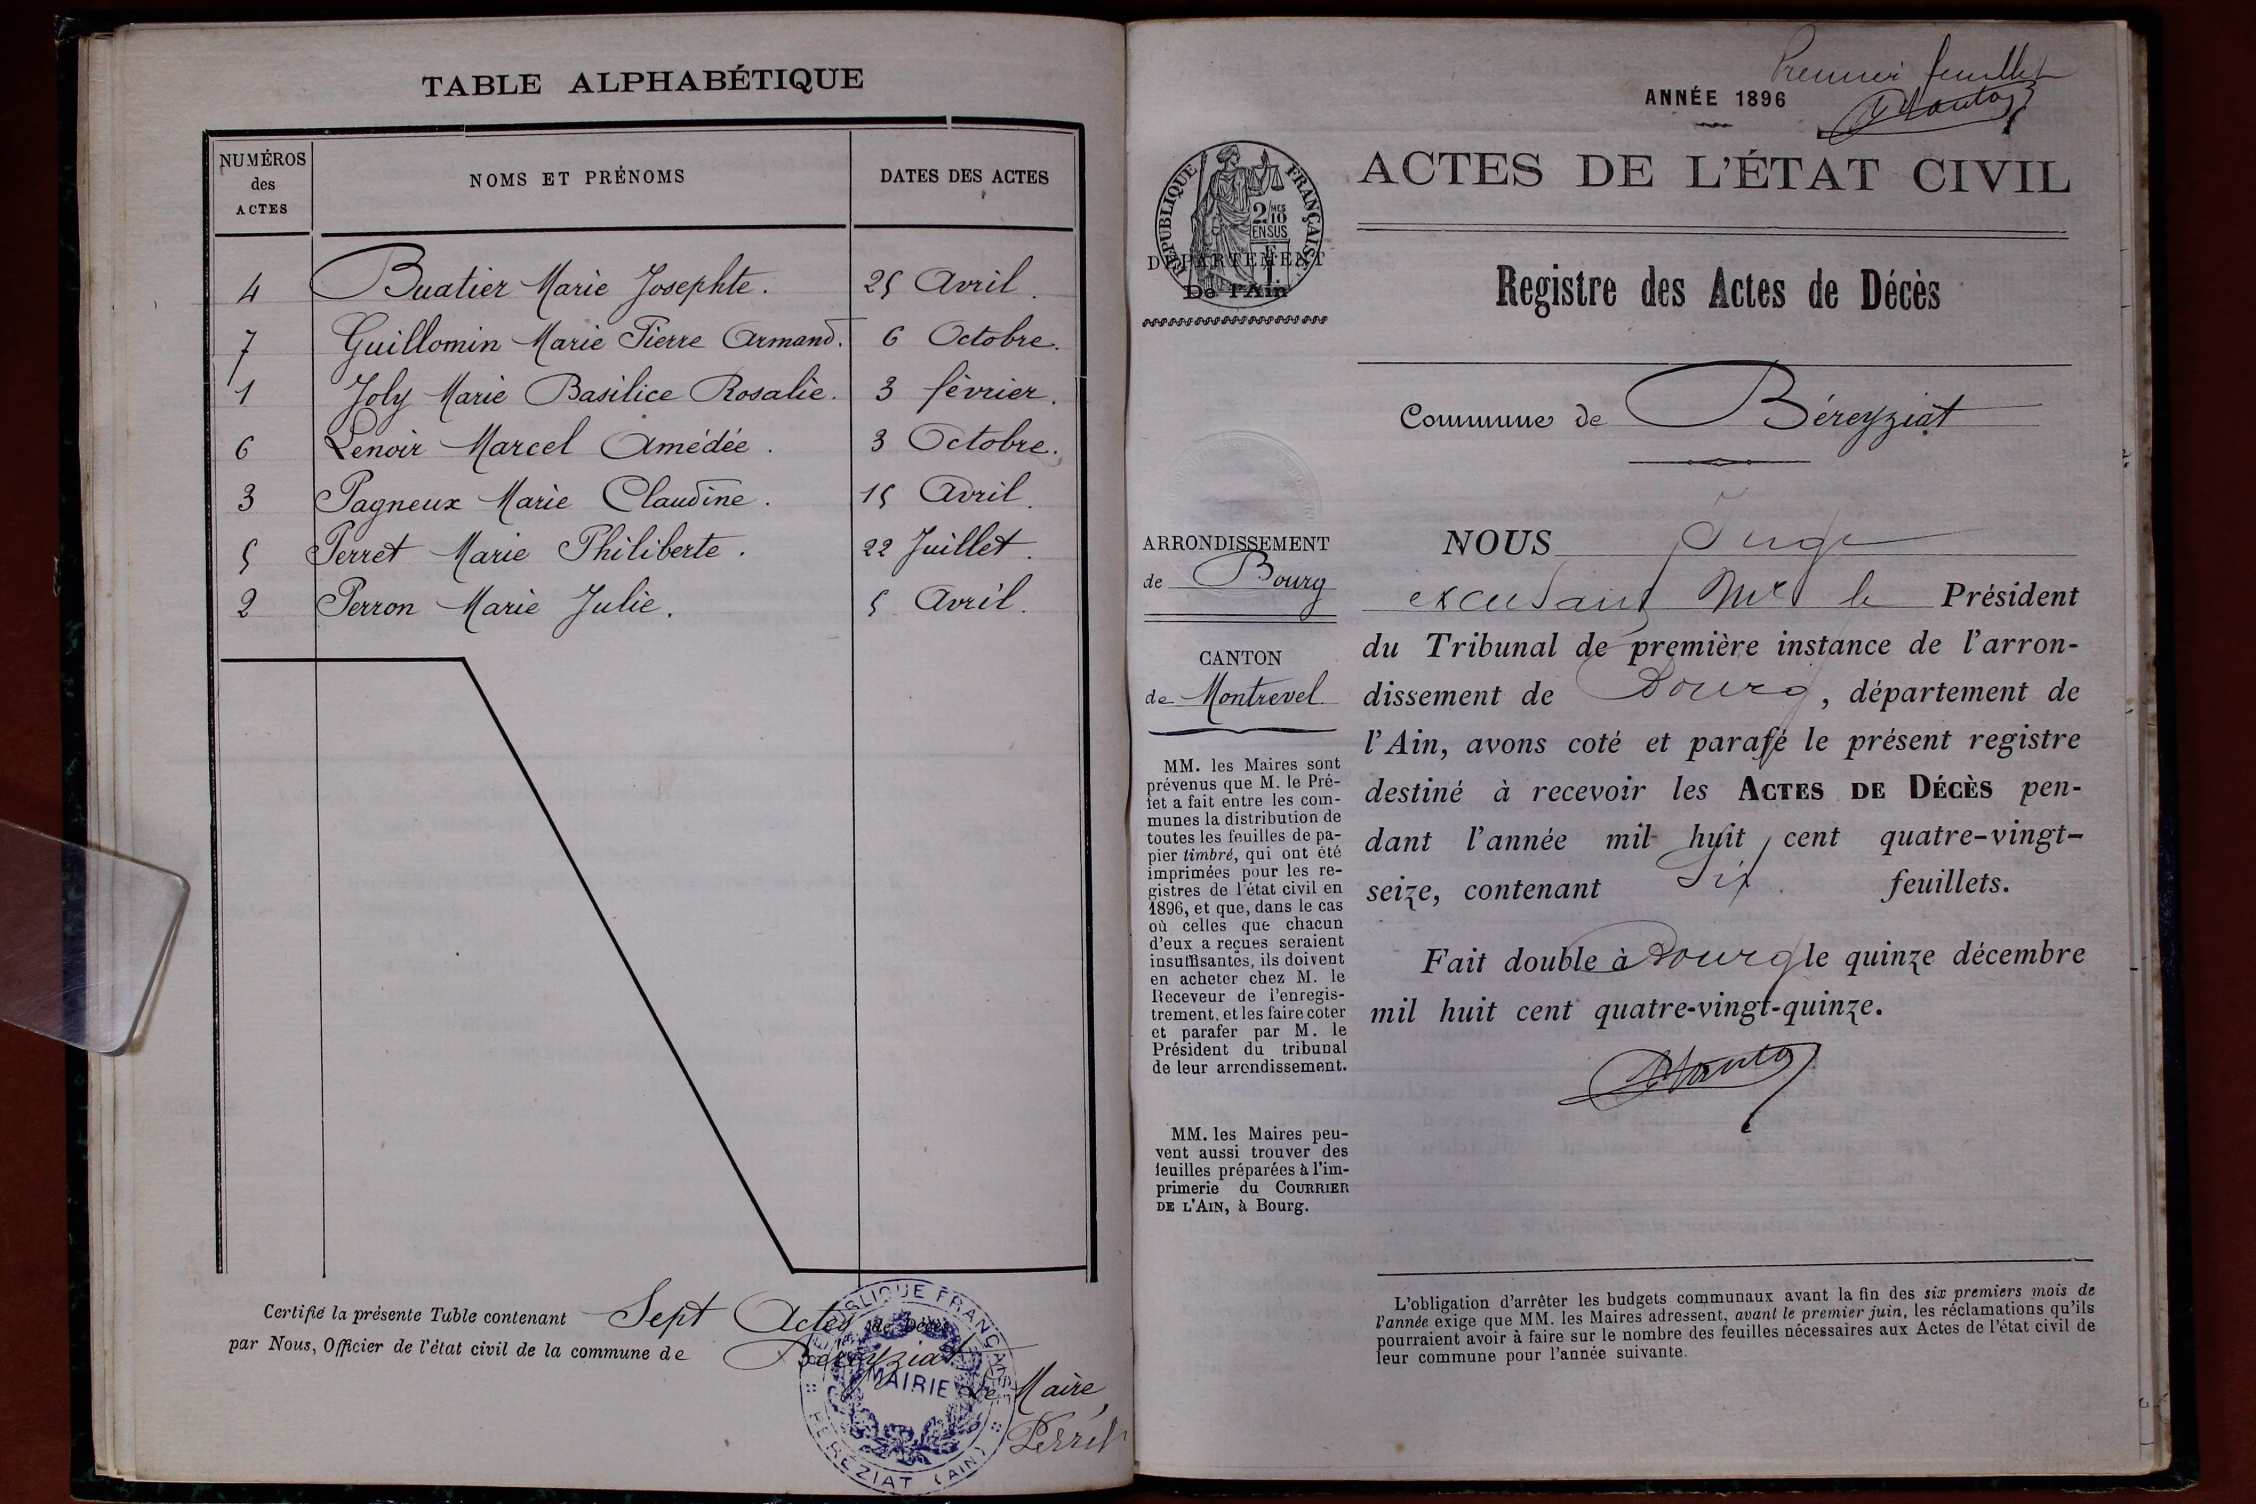 TABLE ALPHABÉTIQUE
NUMÉROS des ACTES NOMS ET PRÉNOMS DATES DES ACTES
4 Buatier Marie Josephte. 25 Avril.
7 Guillomin Marie Pierre Armand. 6 Octobre.
1 Joly Marie Basilice Rosalie. 3 février.
6 Lenoir Marcel Amédée. 3 Octobre.
3 Pagneux Marie Claudine. 15 Avril.
5 Perret Marie Philiberte. 22 Juillet.
2 Perron Marie Julie. 5 Avril.
Certifié la présente Table contenant Sept Actes de Décès
par Nous, Officier de l'état civil de la commune de Béreyziat
Le Maire,
Perret
RÉPUBLIQUE FRANÇAISE
MAIRIE
BÉRÉZIAT (AIN)
Premier feuillet
ANNÉE 1896
RÉPUBLIQUE FRANÇAISE
2/10 MES
EN SUS
DÉPARTEMENT
De l'Ain
ACTES DE L'ÉTAT CIVIL
Registre des Actes de Décès
Commune de Béreyziat
ARRONDISSEMENT
de Bourg
CANTON
de Montrevel
MM. les Maires sont
prévenus que M. le Pré-
fet a fait entre les com-
munes la distribution de
toutes les feuilles de pa-
pier timbré, qui ont été
imprimées pour les re-
gistres de l'état civil en
1896, et que, dans le cas
où celles que chacun
d'eux a reçues seraient
insuffisantes, ils doivent
en acheter chez M. le
Receveur de l'enregis-
trement, et les faire coter
et parafer par M. le
Président du tribunal
de leur arrondissement.
MM. les Maires peu-
vent aussi trouver des
feuilles préparées à l'im-
primerie du COURRIER
DE L'AIN, à Bourg.
NOUS Juge
excusant Mr le Président
du Tribunal de première instance de l'arron-
dissement de Bourg, département de
l'Ain, avons coté et parafé le présent registre
destiné à recevoir les ACTES DE DÉCÈS pen-
dant l'année mil huit cent quatre-vingt-
seize, contenant Six feuillets.
Fait double à Bourg le quinze décembre
mil huit cent quatre-vingt-quinze.
L'obligation d'arrêter les budgets communaux avant la fin des six premiers mois de
l'année exige que MM. les Maires adressent, avant le premier juin, les réclamations qu'ils
pourraient avoir à faire sur le nombre des feuilles nécessaires aux Actes de l'état civil de
leur commune pour l'année suivante.